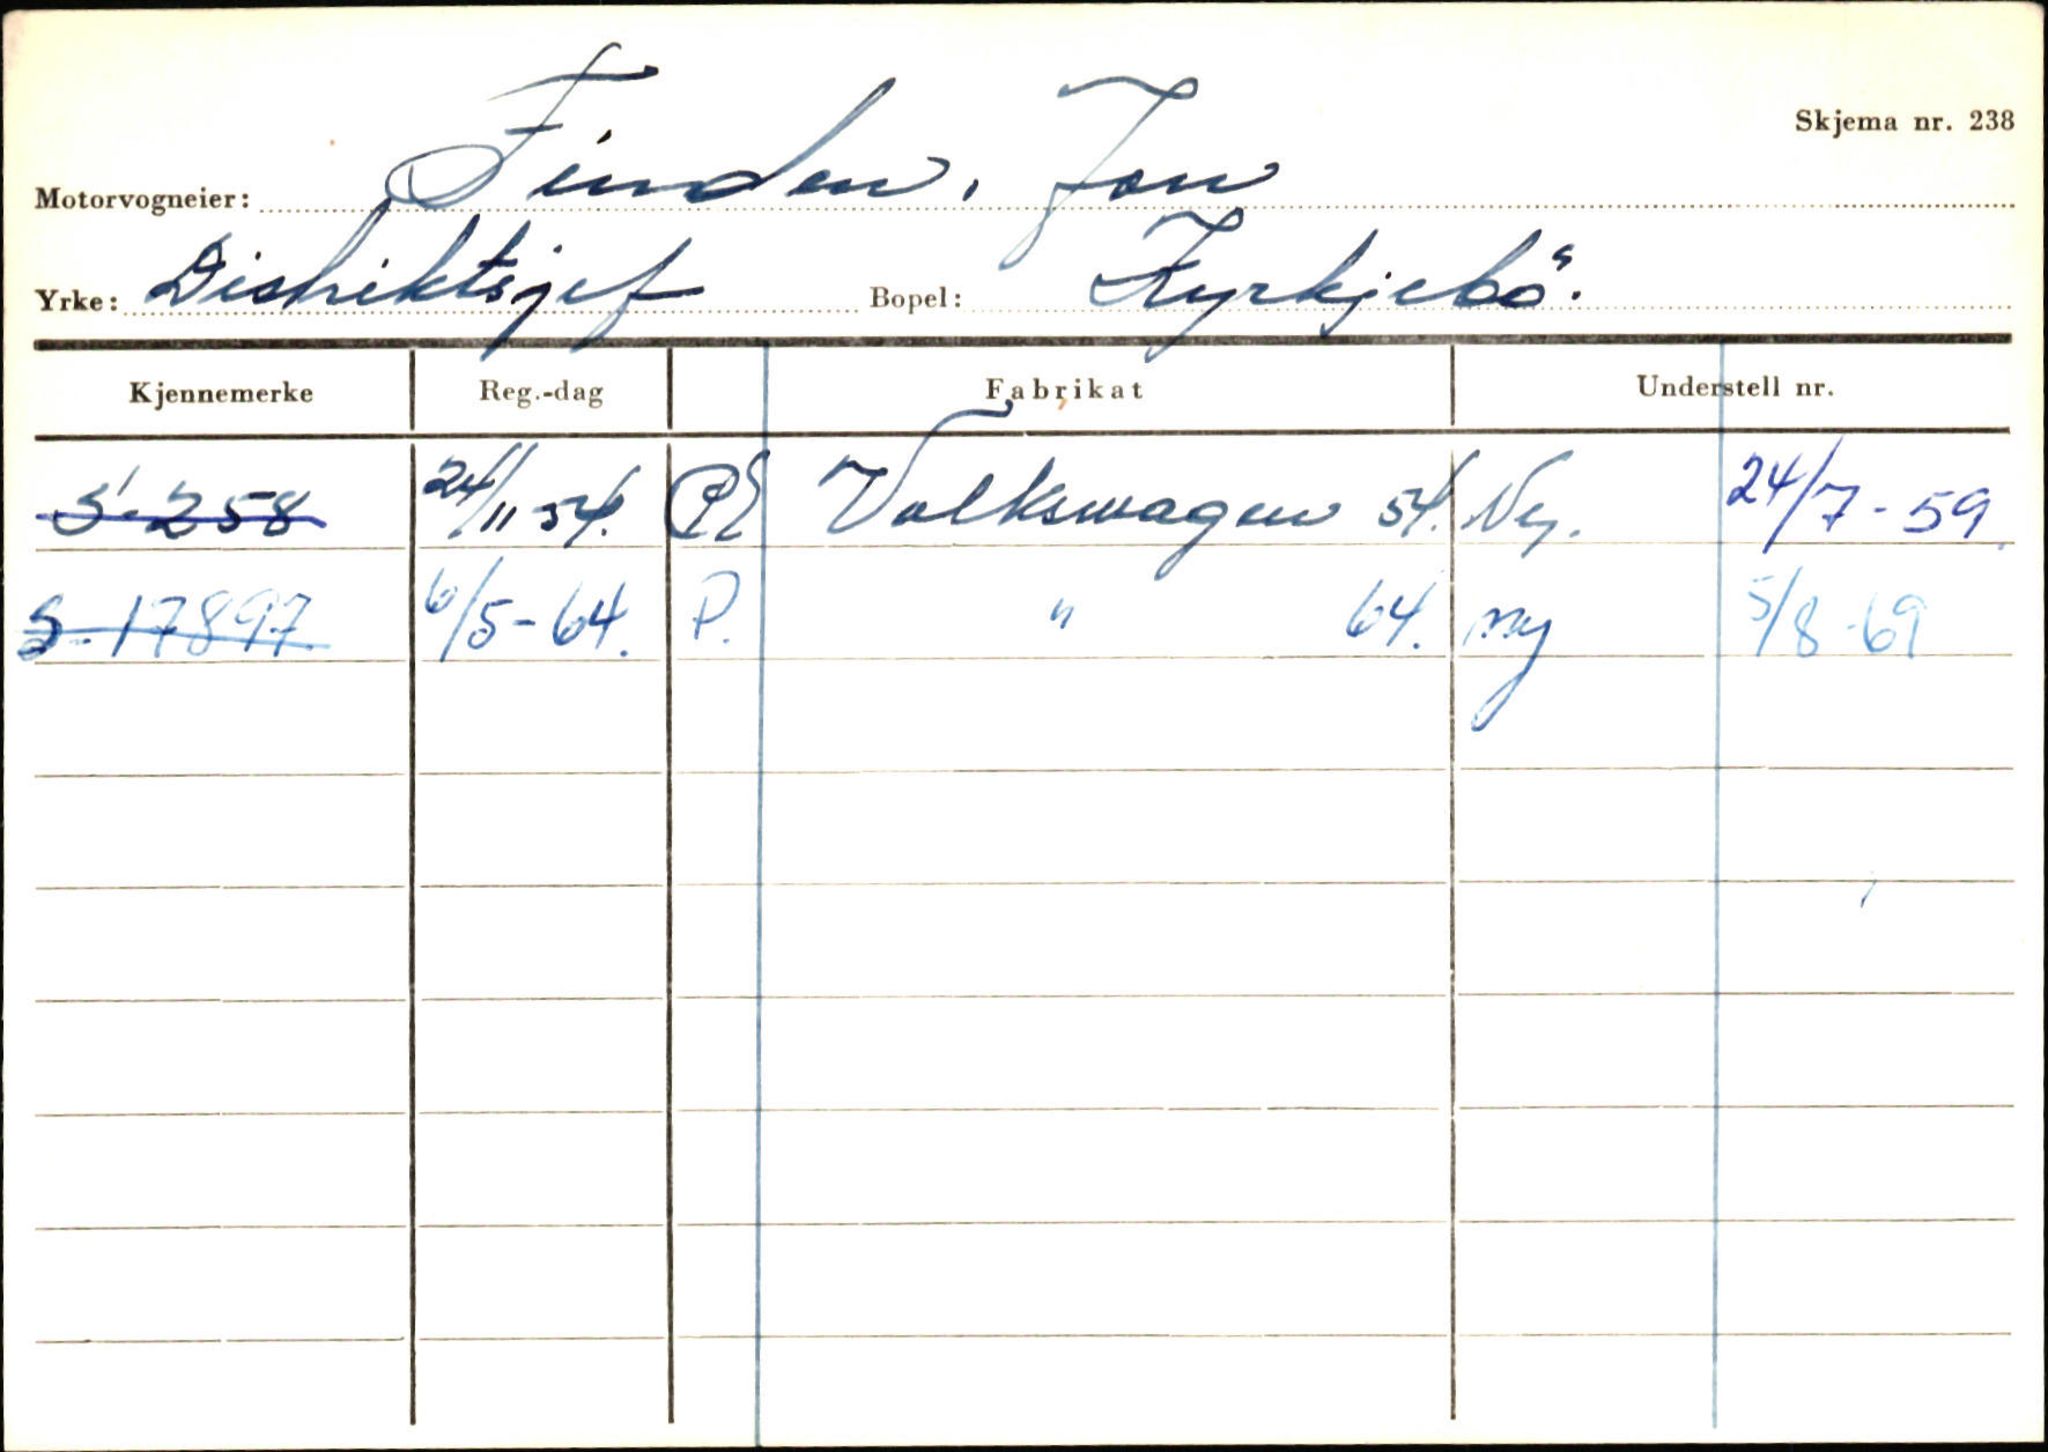 Skjema nr. 238
Motorvogneier: Finden, Jon
Yrke: Distriktsjef Bopel: Kyrkjebö.
Kjennemerke Reg.-dag Fabrikat Understell nr.
S-258 24/11 54. PE Volkswagen 54. Ny. 24/7-59.
S-17897 6/5-64. P. " 64. ny 5/8-69